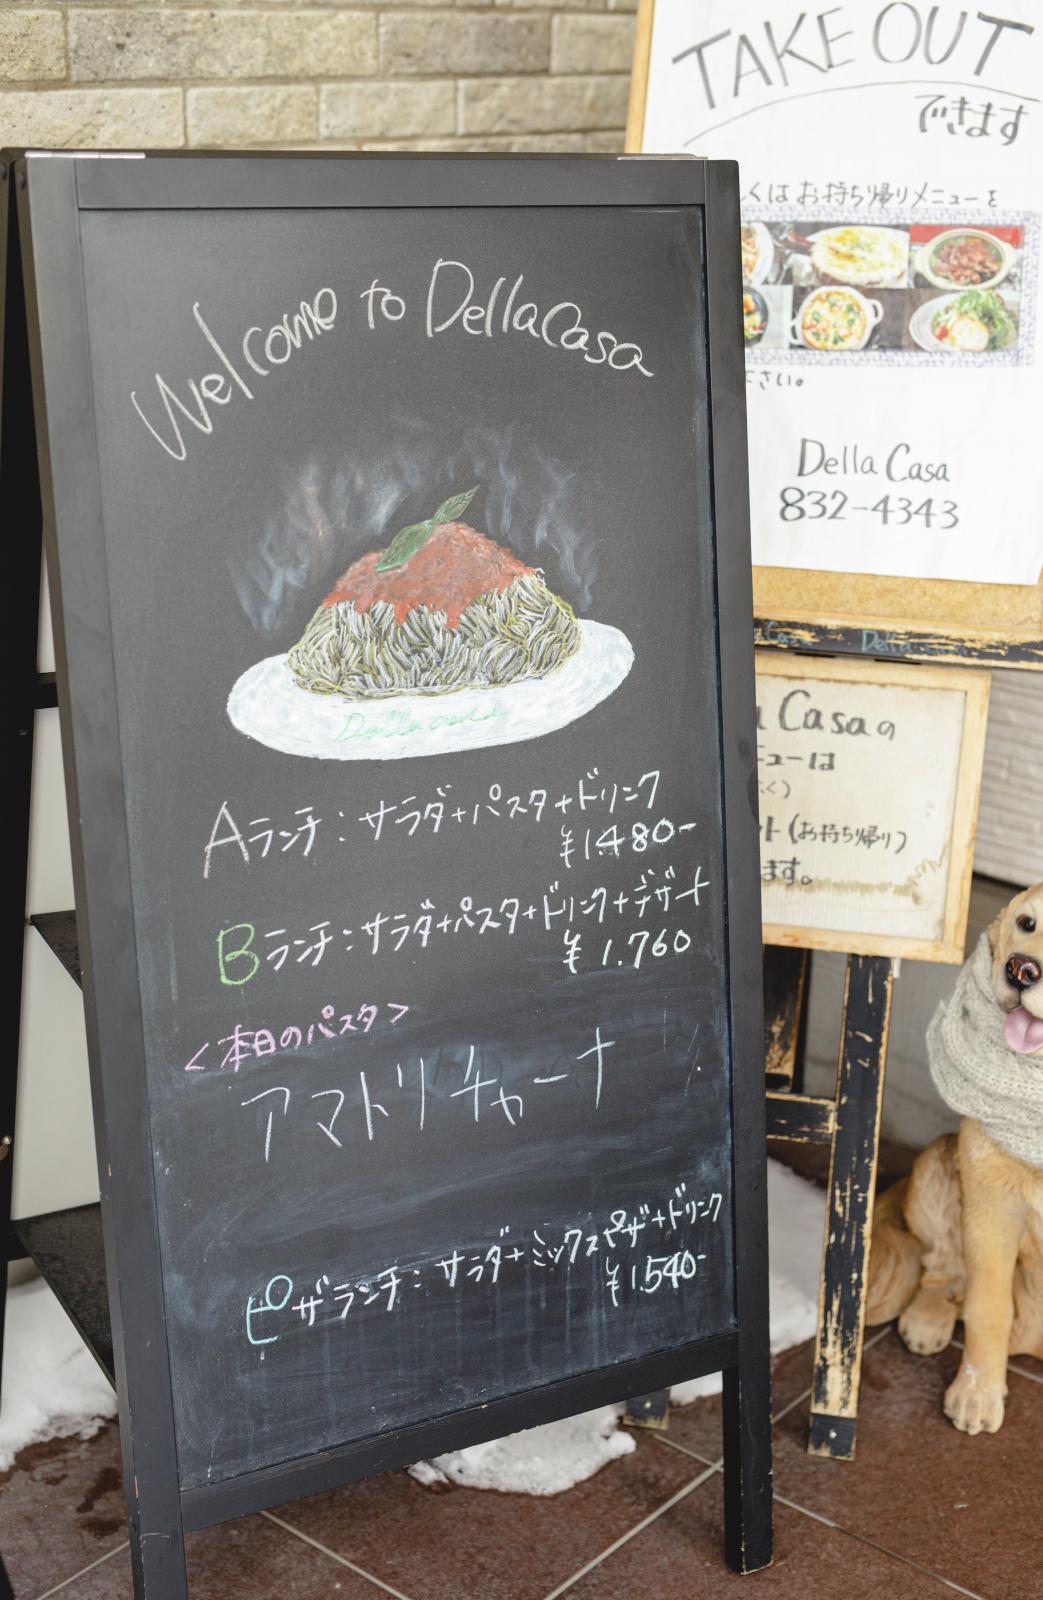 Welcome to DellaCasa
Della casa
Aランチ：サラダ+パスタ+ドリンク
¥1.480-
Bランチ：サラダ+パスタ+ドリンク+デザート
¥1.760
<本日のパスタ>
アマトリチャーナ
ピザランチ：サラダ+ミックスピザ+ドリンク
¥1.540-
TAKE OUT
できます
くは お持ち帰りメニューを
さい。
Della Casa
832-4343
Casaの
ューは
く）
ト(お持ち帰り)
ます。